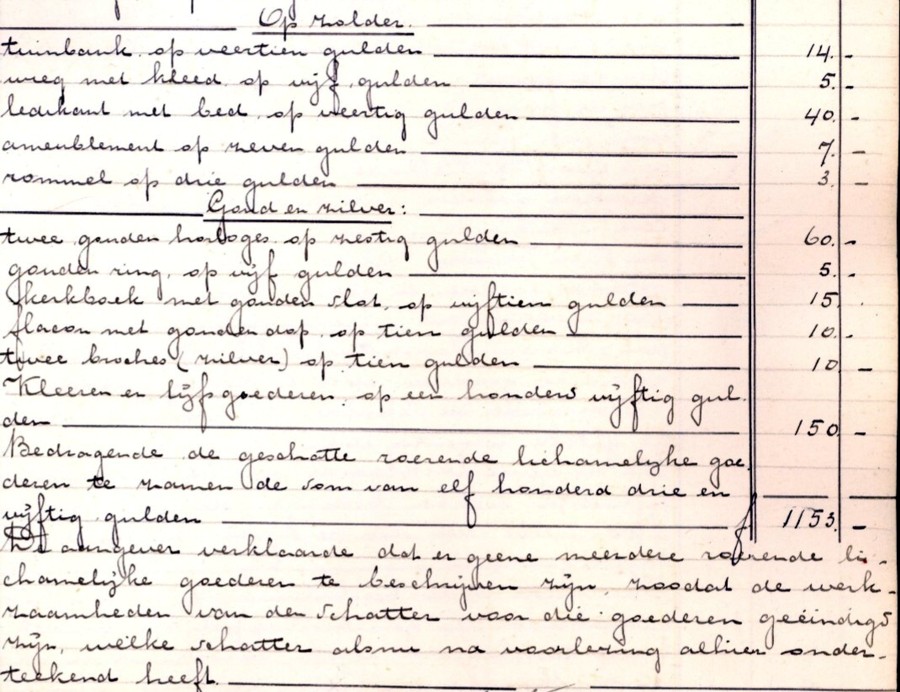 Op zolder.
tuinbank op veertien gulden 14.-
wieg met kleed op vijf gulden 5.-
ledikant met bed op veertig gulden 40.-
ameublement op zeven gulden 7.-
rommel op drie gulden 3.-
Goud en zilver:
twee gouden horloges op zestig gulden 60.-
gouden ring, op vijf gulden 5.-
kerkboek met gouden slot, op vijftien gulden 15.-
flacon met gouden dop, op tien gulden 10.-
twee broches (zilver) op tien gulden 10.-
Kleeren en lijfgoederen op een honderd vijftig gul-
den 150.-
Bedragende de geschatte roerende lichamelijke goe-
deren te zamen de som van elf honderd drie en
vijftig gulden f 1153.-
De aangever verklaarde dat er geene meerdere roerende li-
chamelijke goederen te beschrijven zijn, zoodat de werk-
zaamheden van den schatter voor die goederen geëindigd
zijn, welke schatter alsnu na voorlezing alhier onder-
teekend heeft.